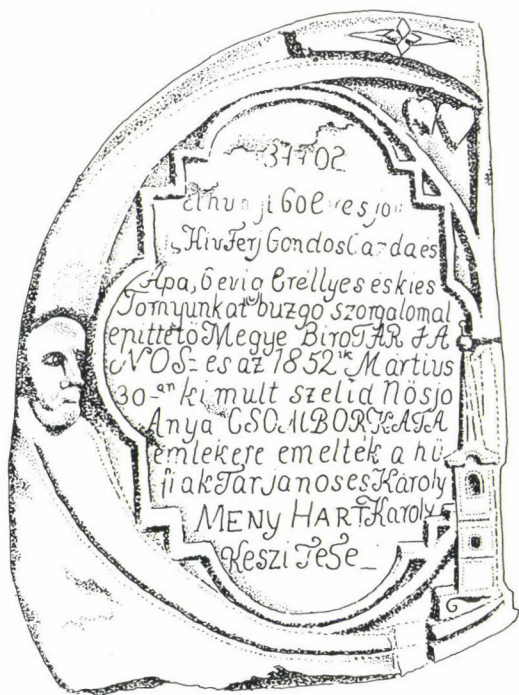 Hiv Ferj Gondos Gazda es
Apa, 6 evig Erellyes es kies
Tornyunkat buzgo szorgalomal
epittetö Megye Biro TAR JA
NOS= es az 1852ik Martius
30-an ki mult szelid Nösjo
Anya CSOMBOR KATA
emlekere emeltek a hü
fiak Tar Janos es Károly
MENY HART Karoly
Keszi Tese_